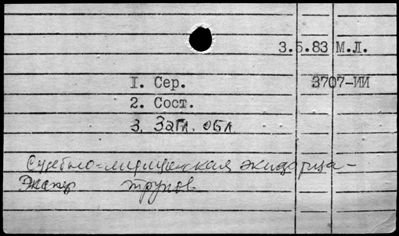 3.5.83 М.Л.
1. Сер. 3707-ИИ
2. Сост.
3. Загл. обл.
Судебно-медицинская
трупов